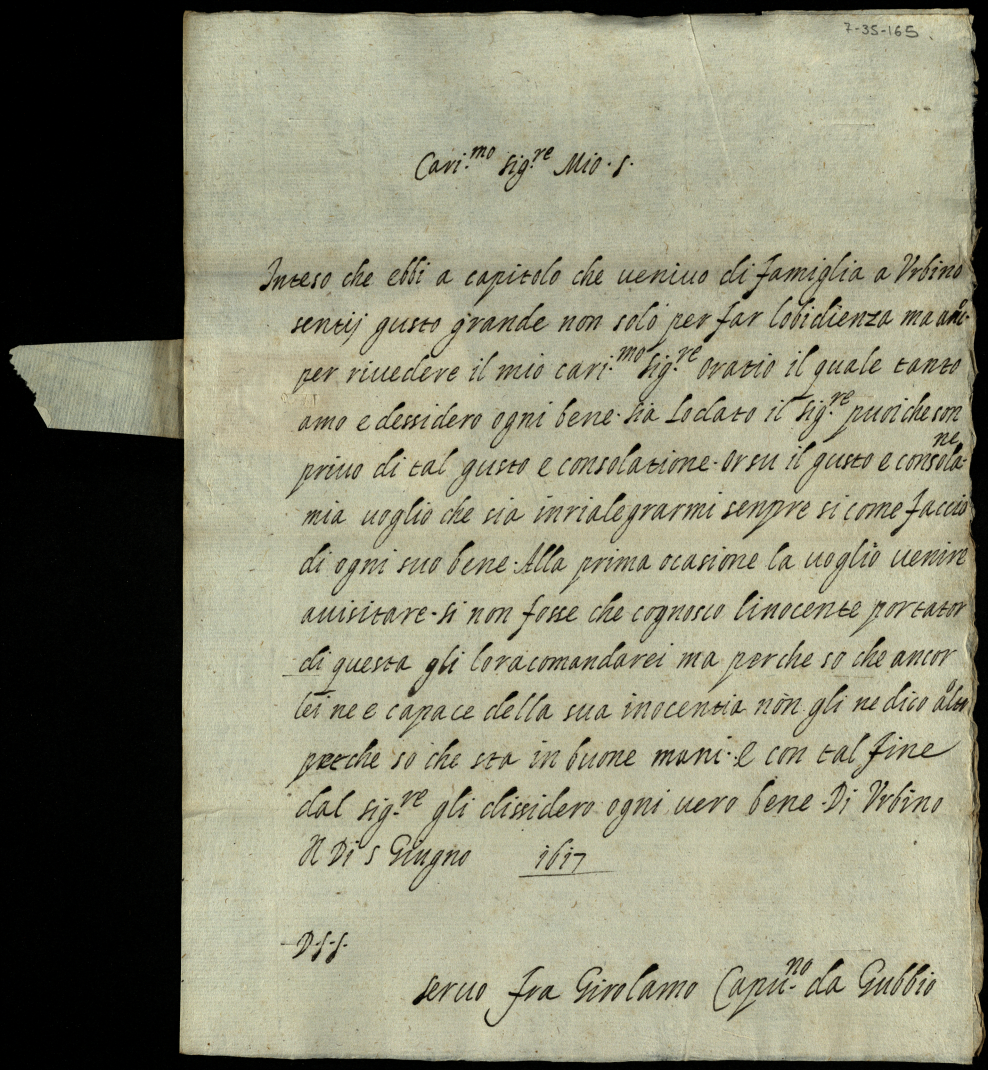 7-35-165
Cari.mo sig.re Mio. s.
Inteso che ebbi a capitolo che venivo di famiglia a Vrbino
sentij gusto grande non solo per far lobidienza ma
per rivedere il mio cari.mo sig.re oratio il quale tanto
amo e dessidero ogni bene. sia Lodato il sig.re puoi che son
privo di tal gusto e consolatione. orsu il gusto e consola.ne
mia voglio che sia inrialegrarmi senpre si come faccio
di ogni suo bene. Alla prima ocasione la voglio venire
avisitare. si non fosse che cognosco linocente portator
di questa gli loracomandarei ma perche so che ancor
lei ne e capace della sua inocentia non gli ne dico altro
perche so che sta in buone mani. E con tal fine
dal sig.re gli dissidero ogni vero bene. Di Vrbino
Il Di 5 Giugno 1617
D. s. s.
servo fra Girolamo Capu.no da Gubbio